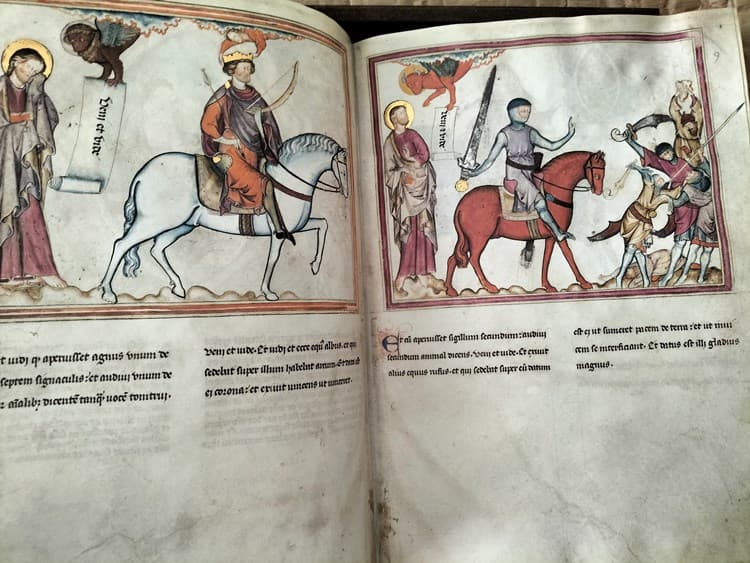 Veni et vide
t uidi qͥ aperuisset agnus vnum de
septem signaculis: et audiui vnum de
dicentē tanqͣ uocē tonitrui.
veni et vide. Et uidi et ecce equs albus. et q
sedebat super illum habebat arcum. Et data
ei corona: et exiuit uincens ut uinceret.
veni et vide
9
Et cū aperuisset sigillum secundum: audiui
secundum animal dicens. veni et vide. Et exiuit
alius equus rufus. et qui sedebat super eū datum
est ei ut sumeret pacem de terra: et ut inui
cem se interficiant. Et datus est illi gladius
magnus.